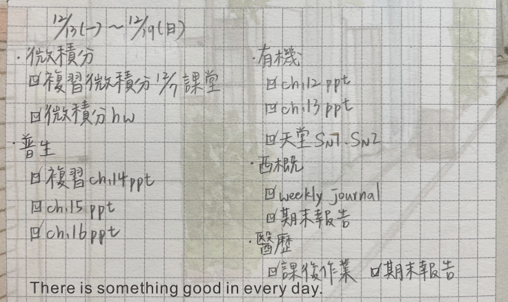 12/13(一)～12/19(日)
·微積分
□複習微積分12/7課堂
□微積分hw
·普生
□複習ch.14ppt
□ch.15 ppt
□ch.16ppt
·有機
□ch.12 ppt
□ch.13 ppt
□天堂SN1.SN2
·西概
□weekly journal
□期末報告
·醫歷
□課後作業 □期末報告
There is something good in every day.